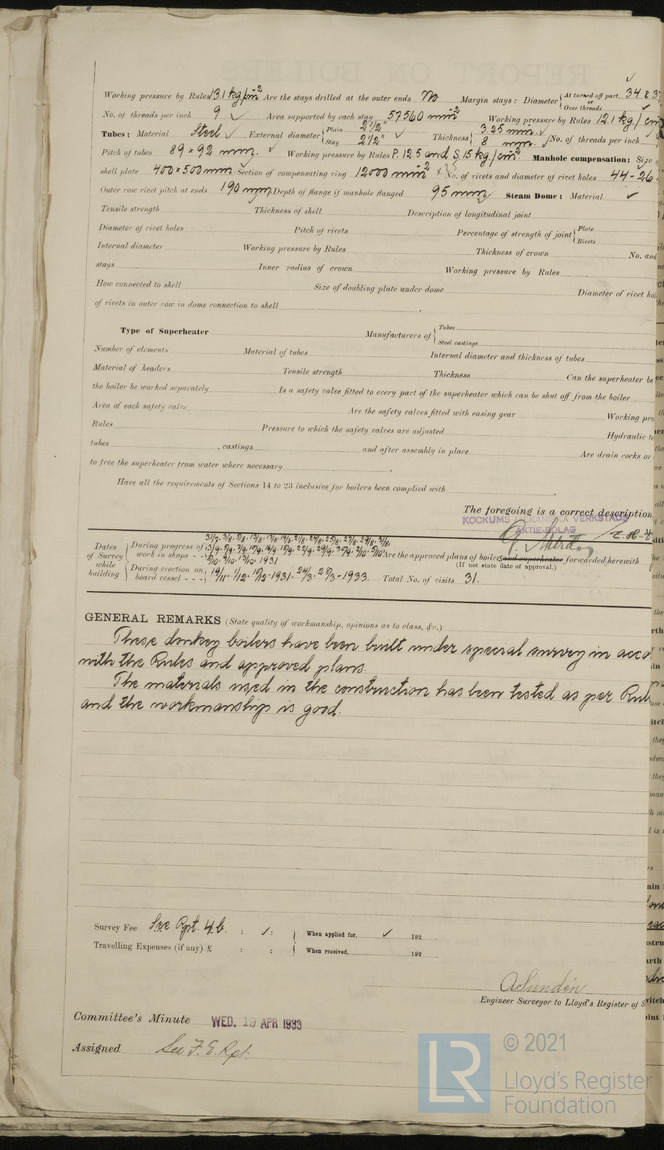 Working pressure by Rules 13.1 kg/cm-2 Are the stays drilled at the outer ends No Margin stays: Diameter { At turned off part, 34 & 37 or Over threads ✓
No. of threads per inch 9 ✓ Area supported by each stay 57560 mm-2 Working pressure by Rules 12.1 kg/cm
Tubes: Material Steel ✓ External diameter { Plain 2½" Stay 2½" ✓ Thickness { 3.25 mm. 8 mm. ✓ No. of threads per inch
Pitch of tubes 89 × 92 mm. ✓ Working pressure by Rules P. 12.5 and S. 15 kg/cm-2 Manhole compensation: Size
shell plate 400 × 500 mm. Section of compensating ring 12000 mm-2 No. of rivets and diameter of rivet holes 44 - 26
Outer row rivet pitch at ends 190 mm. Depth of flange if manhole flanged 95 mm Steam Dome: Material ✓
Tensile strength Thickness of shell Description of longitudinal joint
Diameter of rivet holes Pitch of rivets Percentage of strength of joint { Plate Rivets
Internal diameter Working pressure by Rules Thickness of crown No. and
stays Inner radius of crown Working pressure by Rules
How connected to shell Size of doubling plate under dome Diameter of rivet hol
of rivets in outer row in dome connection to shell
Type of Superheater Manufacturers of { Tubes Steel castings
Number of elements Material of tubes Internal diameter and thickness of tubes
Material of headers Tensile strength Thickness Can the superheater be
the boiler be worked separately Is a safety valve fitted to every part of the superheater which can be shut off from the boiler
Area of each safety valve Are the safety valves fitted with easing gear Working pre
Rules Pressure to which the safety valves are adjusted Hydraulic t
tubes , castings and after assembly in place Are drain cocks or
to free the superheater from water where necessary
Have all the requirements of Sections 14 to 23 inclusive for boilers been complied with
The foregoing is a correct description,
KOCKUMS MEKANISKA VERKSTADS
AKTIE-BOLAG
Dates of Survey while building { During progress of work in shops - - 1931 Are the approved plans of boiler forwarded herewith
(If not state date of approval.)
During erection on board vessel - - - 1931. 1933. Total No. of visits 31.
GENERAL REMARKS (State quality of workmanship, opinions as to class, &c.)
These donkey boilers have been built under special survey in acco
with the Rules and approved plans.
The materials used in the construction has been tested as per Rul
and the workmanship is good.
Survey Fee See Rpt. 4b. : ✓ : When applied for, ✓ 192
Travelling Expenses (if any) £ : : When received, 192
A Lundin
Engineer Surveyor to Lloyd's Register of S
Committee's Minute WED. 19 APR 1933
Assigned See F.E. Rpt.
LR © 2021
Lloyd's Register
Foundation